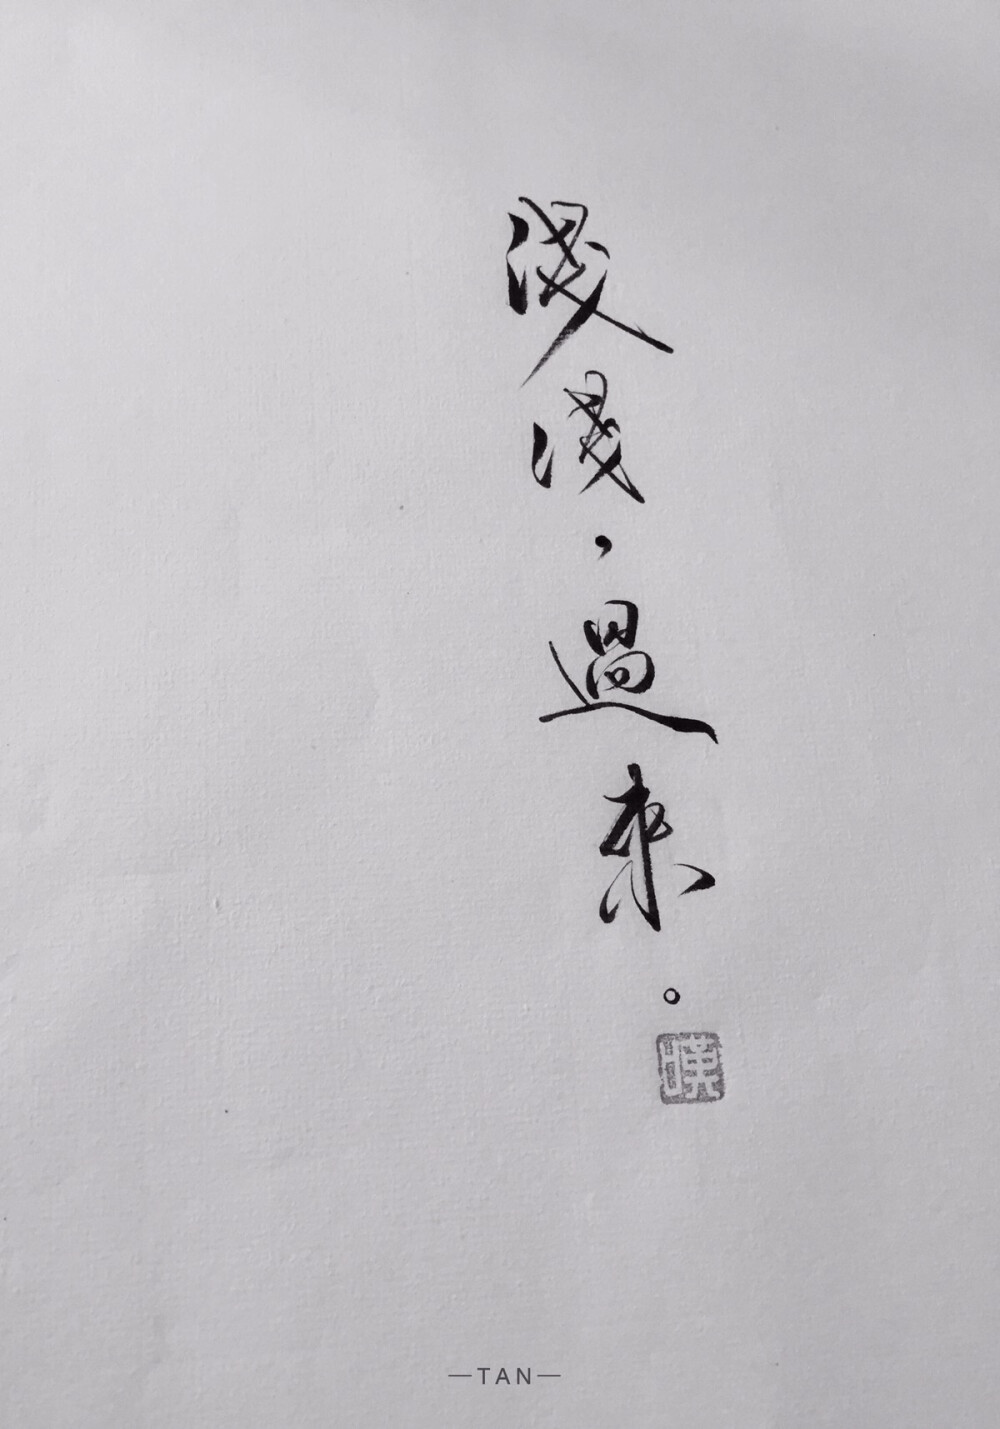 淺淺，過來。
—TAN—